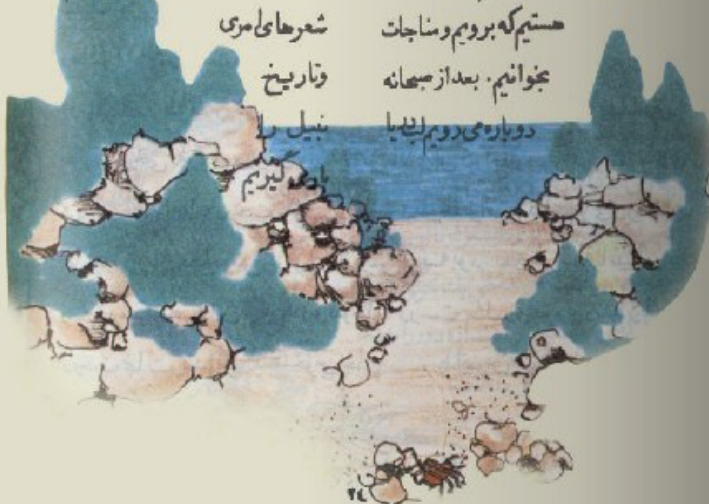 هستیم که برویم و مناجات
بخوانیم. بعد از صبحانه
دوباره می رویم لب دریا
شعرهای امری
و تاریخ
نبیل را
یاد می گیریم
٢٤